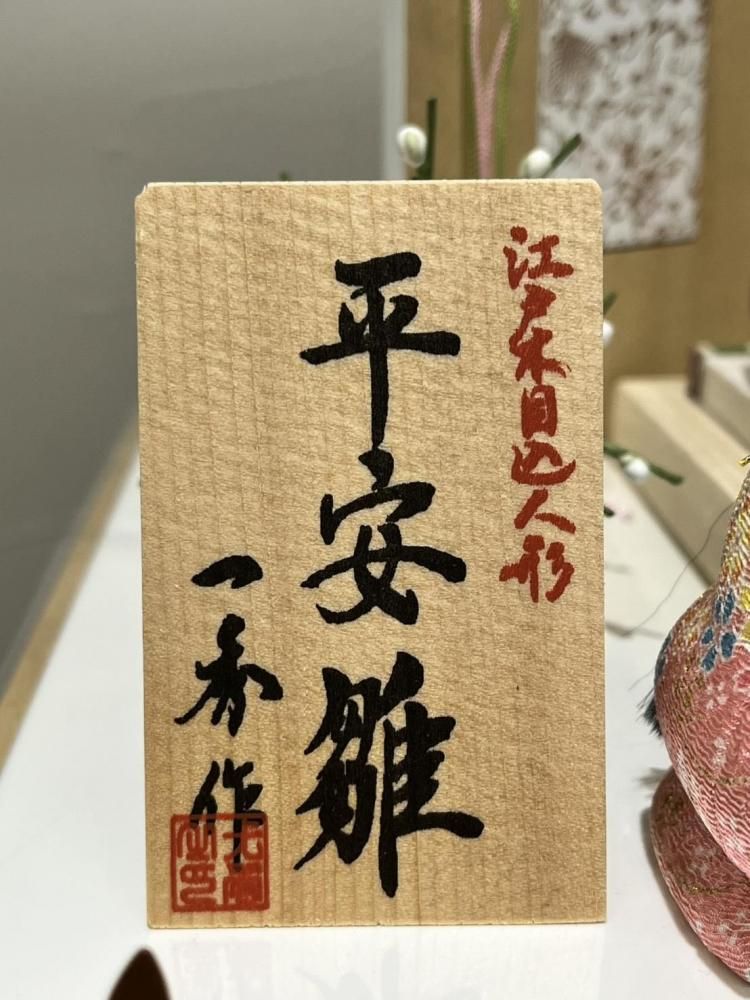 江戸木目込人形
平安雛
一秀作